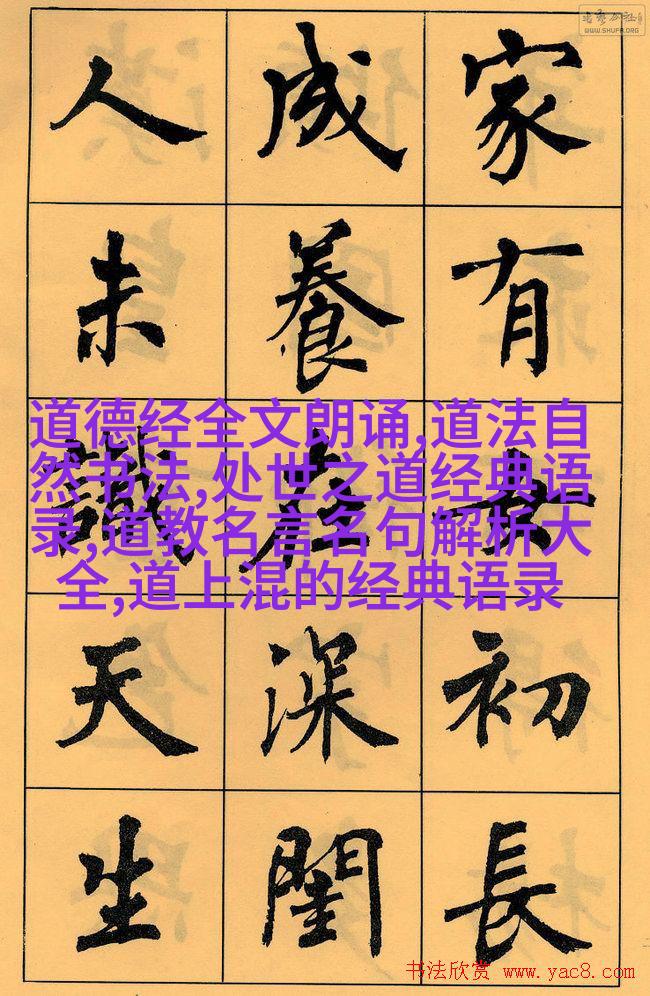 家有女初長
成養在深閨
人未識天生
道德经全文朗诵,道法自
然书法,处世之道经典语
录,道教名言名句解析大
全,道上混的经典语录
WWW.SHUFA.ORG
书法欣赏 www.yac8.com